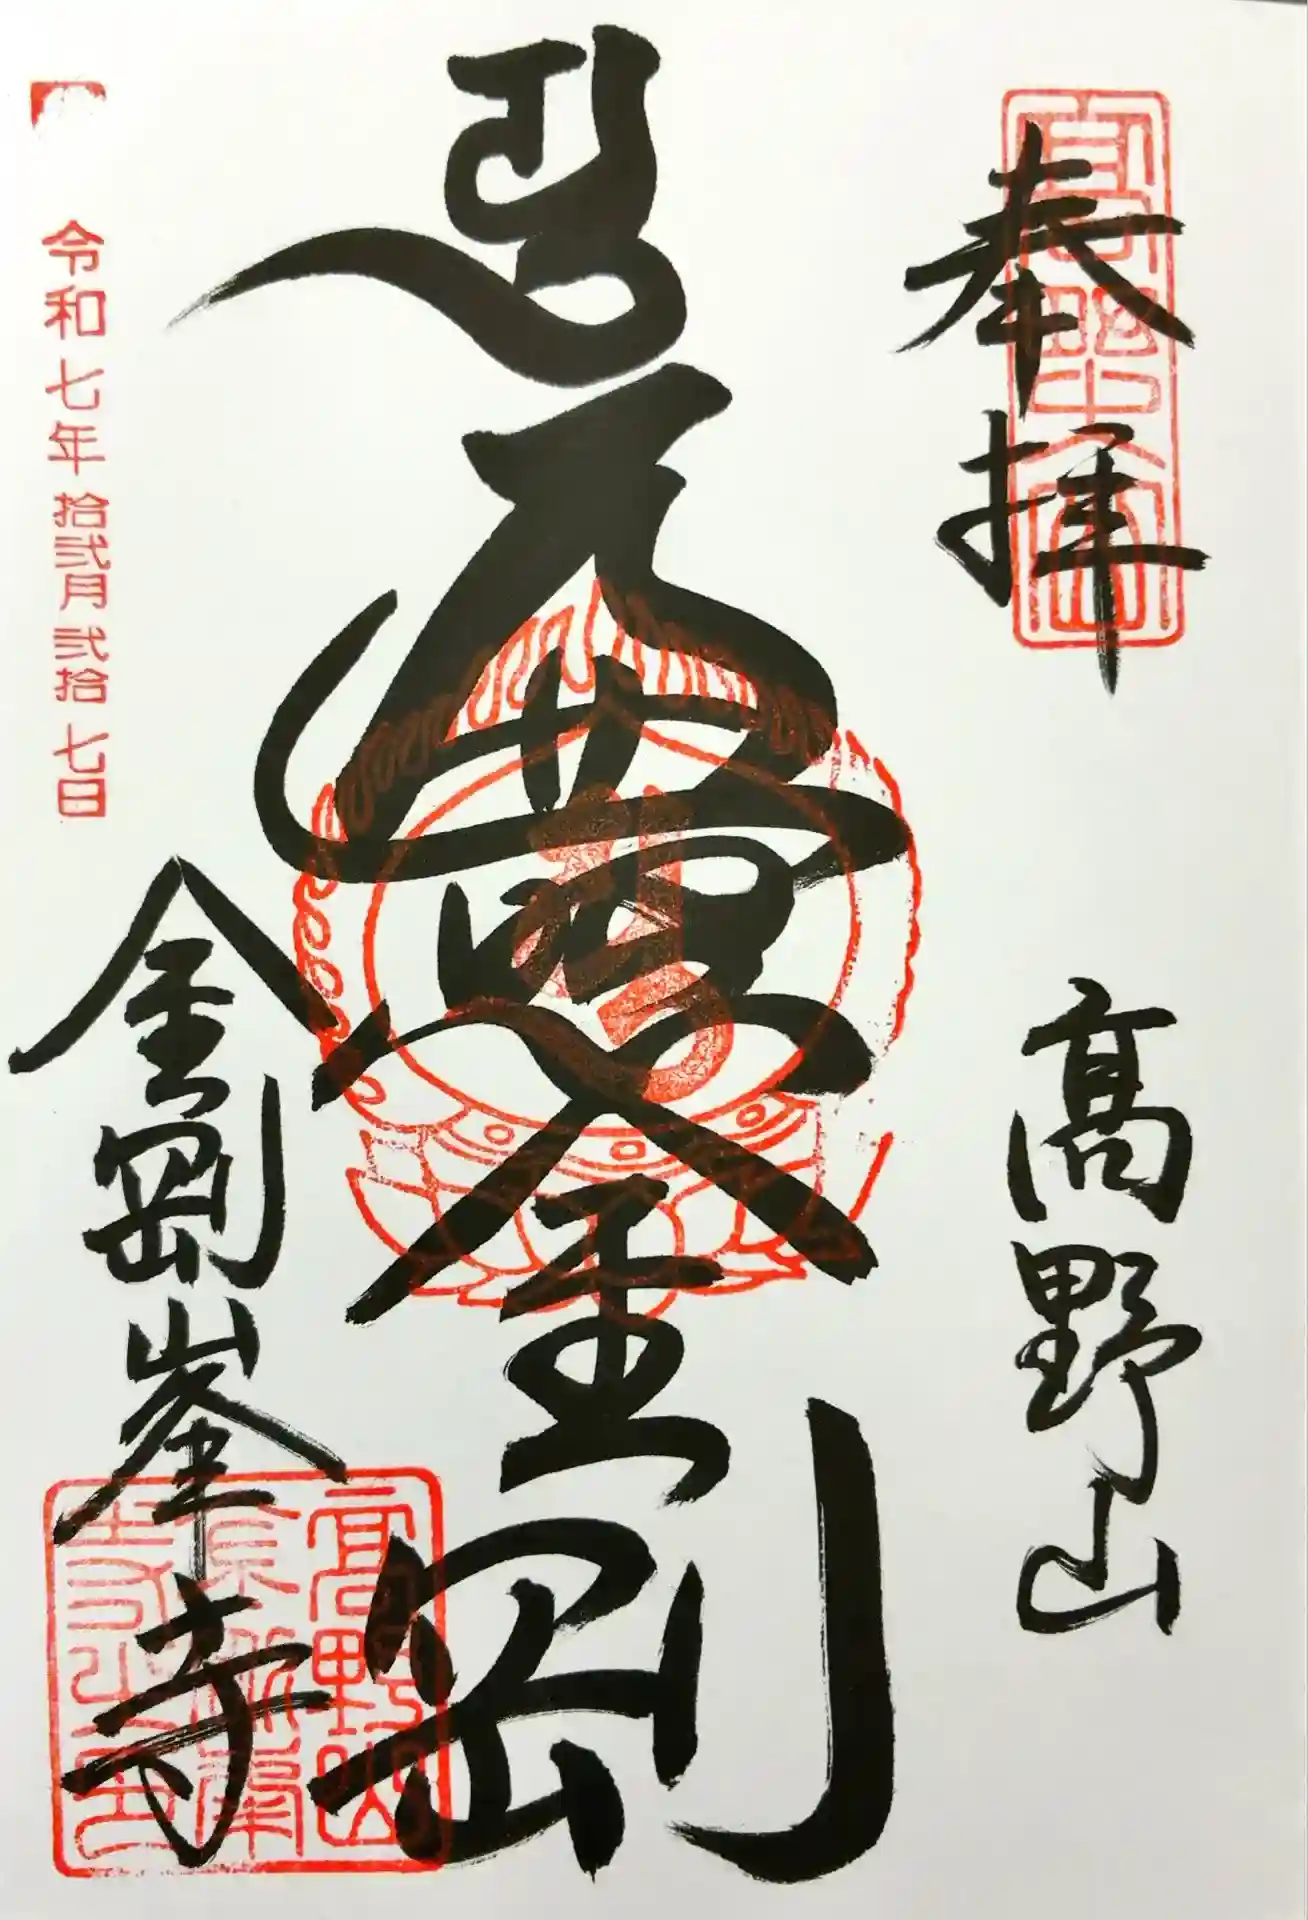 奉拝
高野山
遍照金剛
令和七年拾弐月弐拾七日
金剛峯寺
高野山